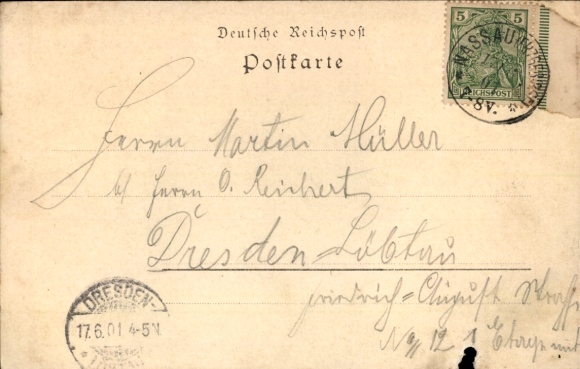 Deutsche Reichspost
Postkarte
5 5
REICHSPOST
NASSAU
8V.
Herrn Martin Müller
b/ Herrn O. Reichert
Dresden-Löbtau
Friedrich-August Straße
No 12 1 Etage
DRESDEN-
17.6.01 4-5N.
LÖBTAU